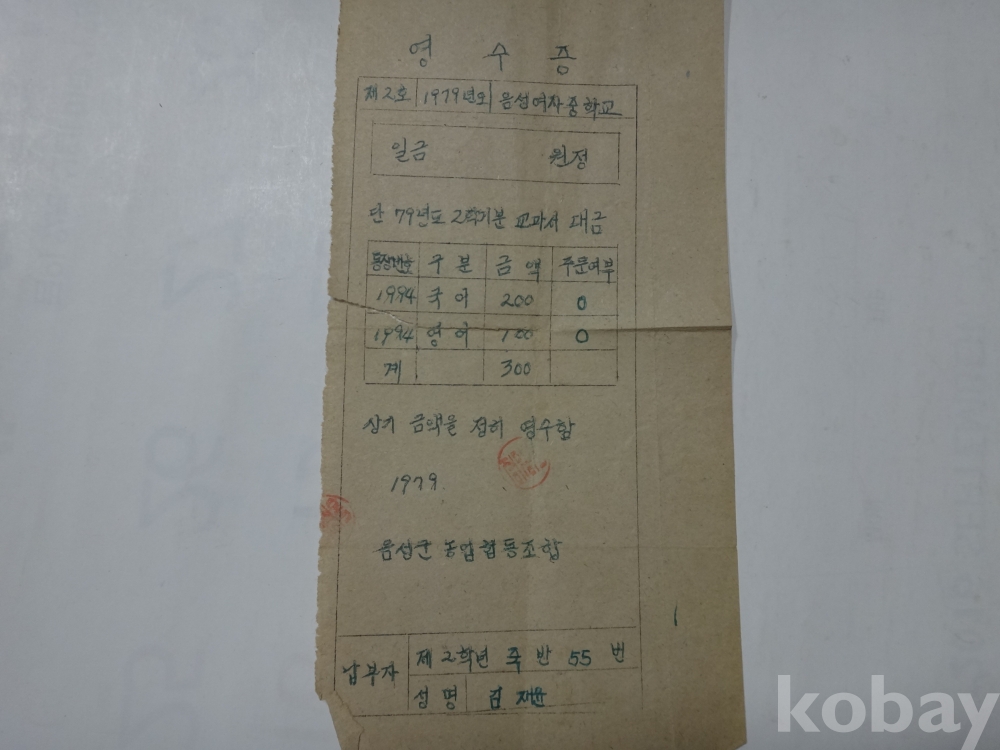 영 수 증
제2호 1979년도 음성여자중학교
일금 원정
단 79년도 2학기분 교과서 대금
통장번호 구 분 금 액 주문여부
1994 국 어 200 0
1994 영 어 100 0
계 300
상기 금액을 정히 영수함
1979.
음성군 농업협동조합
납부자 제 2학년 죽 반 55 번
성 명 김 재윤
kobay